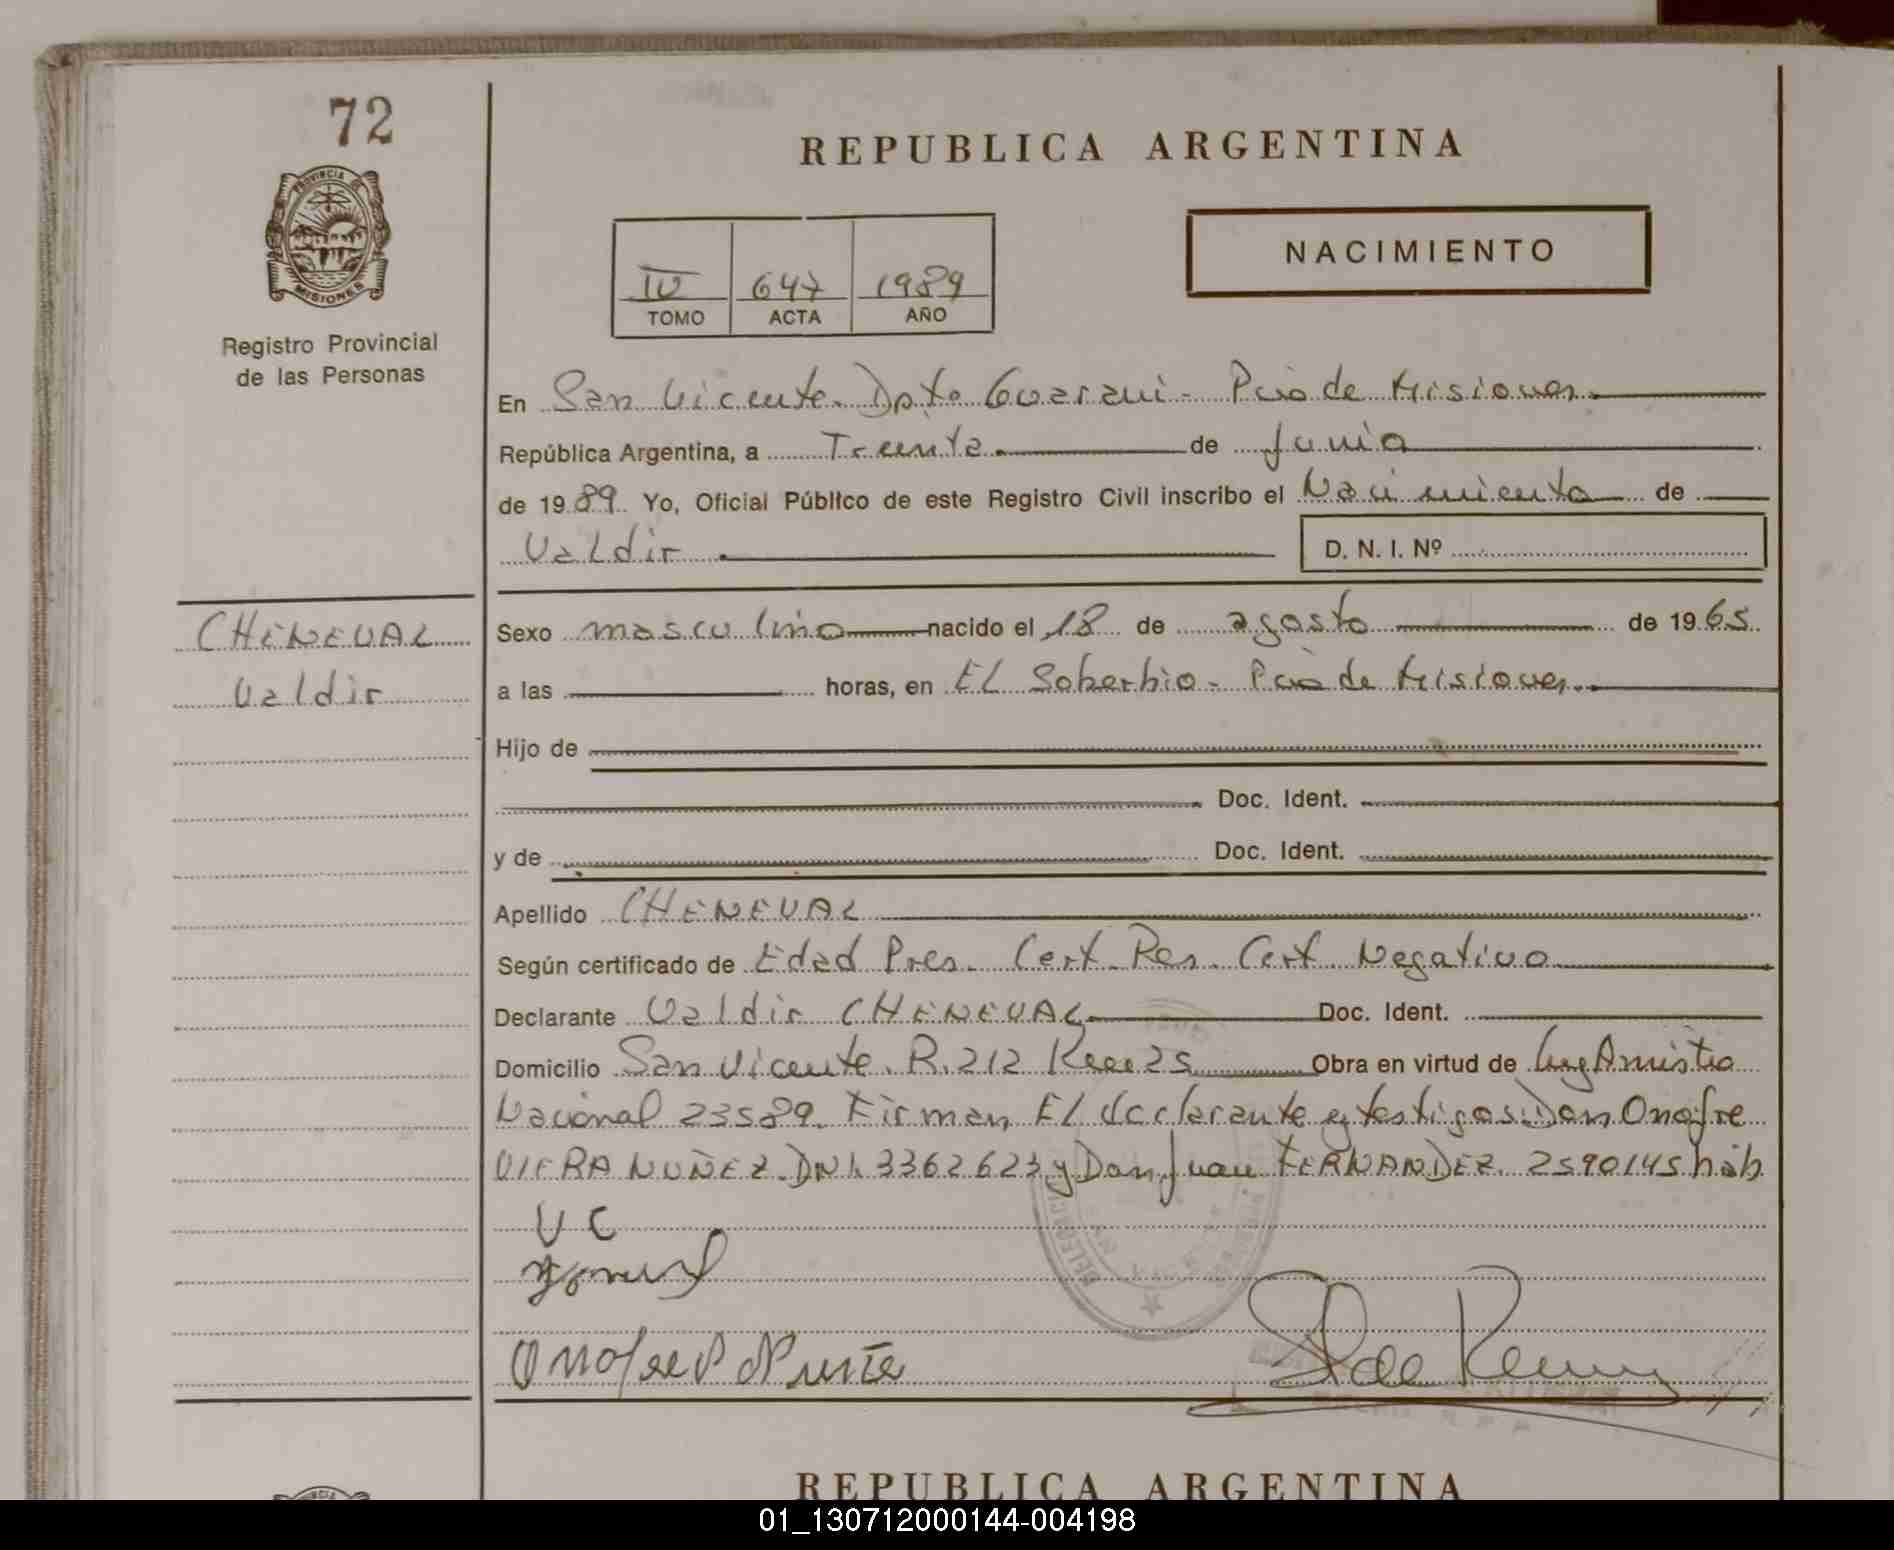 72
REPUBLICA ARGENTINA
PROVINCIA DE
MISIONES
Registro Provincial
de las Personas
NACIMIENTO
IV 647 1989
TOMO ACTA AÑO
En San Vicente. Dpto Guarani - Pcia de Misiones.
República Argentina, a Treinta de Junio
de 1989 Yo, Oficial Público de este Registro Civil inscribo el Nacimiento de
Valdir D. N. I. Nº
CHENEVAL
Valdir
Sexo masculino nacido el 18 de agosto de 1965
a las horas, en El Soberbio - Pcia de Misiones.
Hijo de
Doc. Ident.
y de Doc. Ident.
Apellido CHENEVAL
Según certificado de Edad Pres. Cert. Res. Cert. Negativo
Declarante Valdir CHENEVAL Doc. Ident.
Domicilio San Vicente. R. 212 Obra en virtud de Ley Amistia
Nacional 23589. Firman El declarante y testigos: Don Onofre
VIERA NUÑEZ. DNI. 3362623 y Don Juan FERNANDEZ. 2590145 háb
V C
REPUBLICA ARGENTINA
01_130712000144-004198